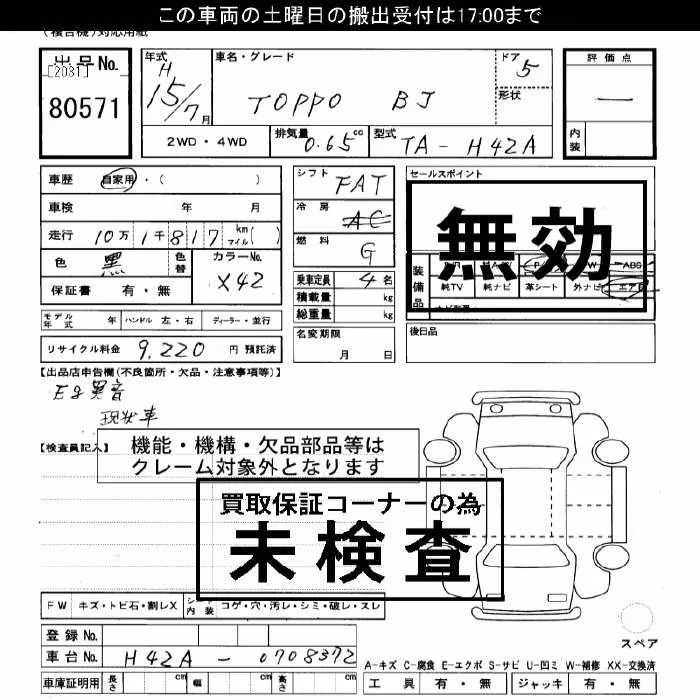 この車両の土曜日の搬出受付は17:00まで
(複合機)対応用紙
出品No. [2031] 80571
年式 H 15/7 月
車名・グレード TOPPO BJ
ドア 5
形状
評価点 —
内装
2WD・4WD
排気量 0.65 cc
型式 TA-H42A
車歴 自家用・( )
車検 年 月
走行 10万1千817 km マイル( )
色 黒 色替 カラーNo. X42
保証書 有・無
モデル年式 年 ハンドル 左・右 ディーラー・並行
リサイクル料金 9,220 円 預託済
シフト FAT
冷房 AC
燃料 G
乗車定員 4 名
積載量 kg
総重量 kg
名変期限 月 日
セールスポイント
無効
装備品 ABS
純TV 純ナビ 革シート 外ナビ エアB
後日品
【出品店申告欄(不良箇所・欠品・注意事項等)】
Eg異音
現状車
【検査員記入】
機能・機構・欠品部品等は
クレーム対象外となります
買取保証コーナーの為
未検査
FW キズ・トビ石・割レX シート内装 コゲ・穴・汚レ・シミ・破レ・スレ
登録No.
車台No. H42A-0708372
車庫証明用 長さ cm 幅 cm 高さ cm
スペア
A-キズ C-腐食 E-エクボ S-サビ U-凹ミ W-補修 XX-交換済
工具 有・無 ジャッキ 有・無